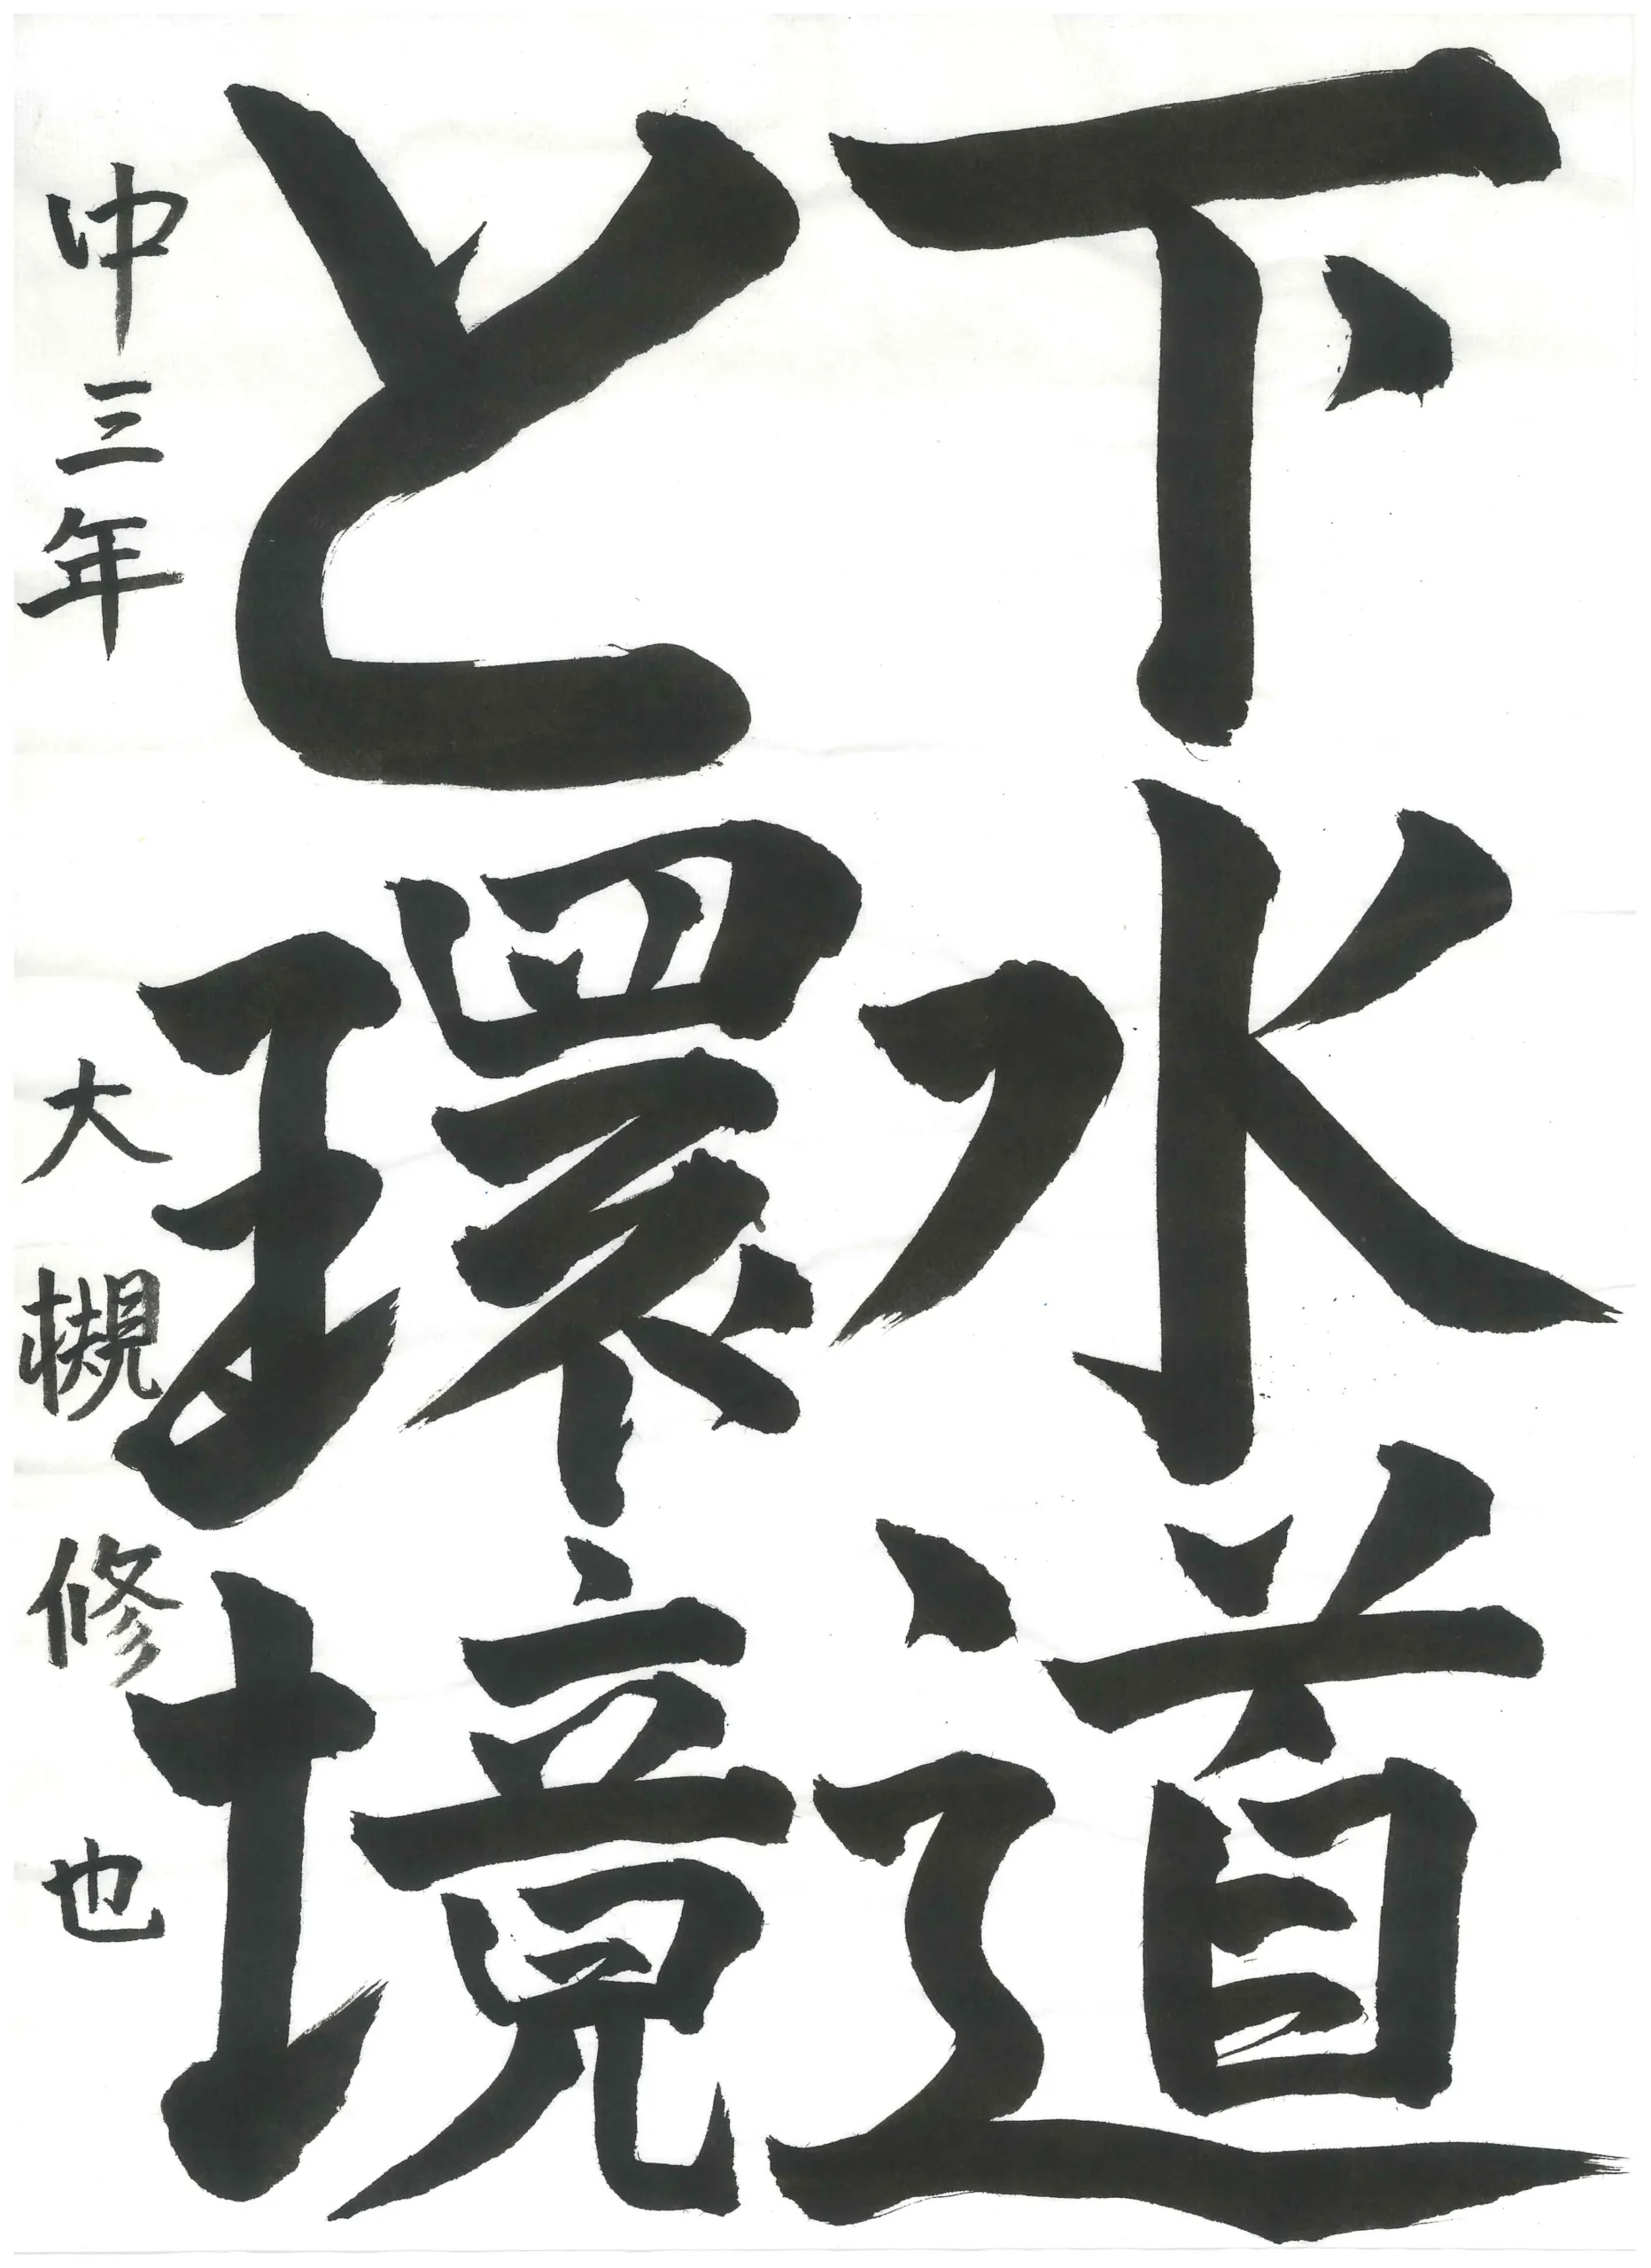 下水道
と環境
中三年 大槻修也